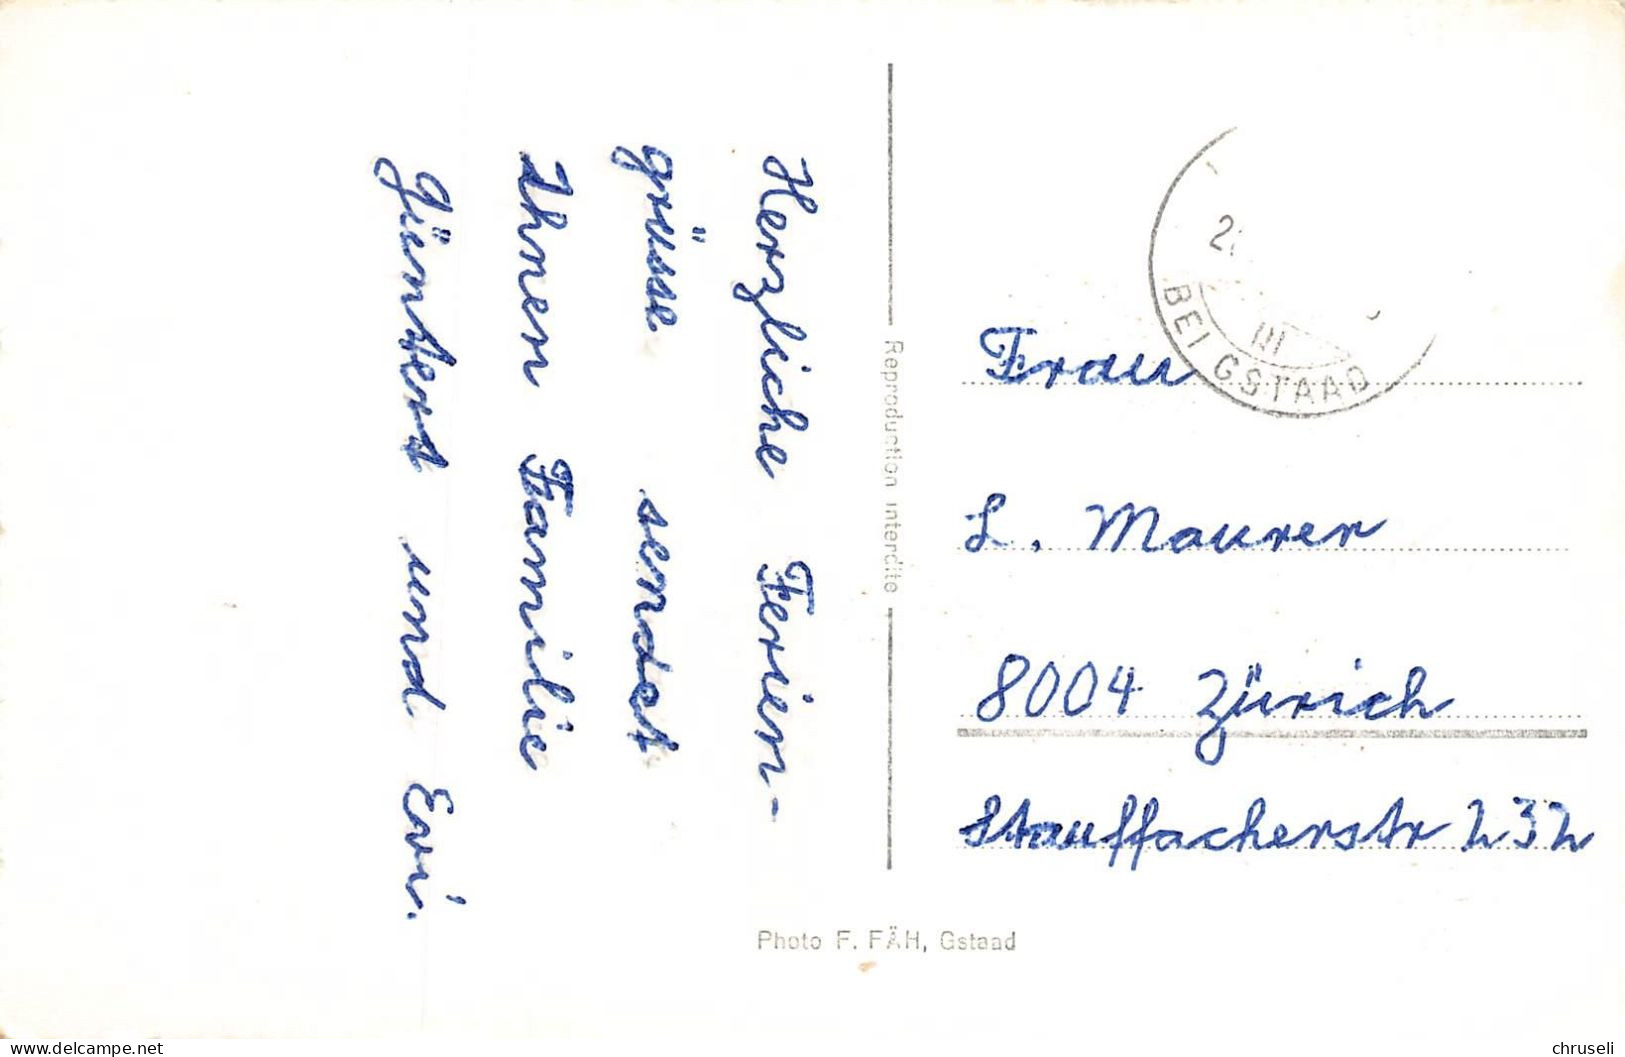 Herzliche Ferien-
grüsse sendet
Ihnen Familie
Güntert und Evi.
Reproduction interdite
BEI GSTAAD
III
Frau
L. Maurer
8004 Zürich
Stauffacherstr 232
Photo F. FÄH, Gstaad
chruseli